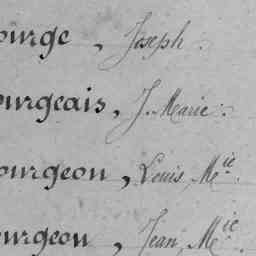 ourge, Joseph.
ourgeais, J. Marie.
ourgeon, Louis, M.ie
ourgeon, Jean, M.ie